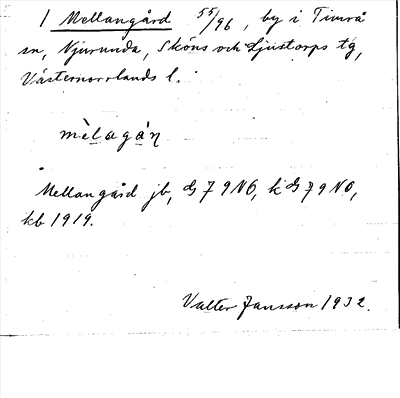 1 Mellangård 55/96, by i Timrå
sn, Njurunda, Sköns och Ljustorps tg,
Västernorrlands l.
mèlagán
Mellangård jb, G 7 9 N6, k G 7 9 N6,
kb 1919.
Valter Jansson 1932.